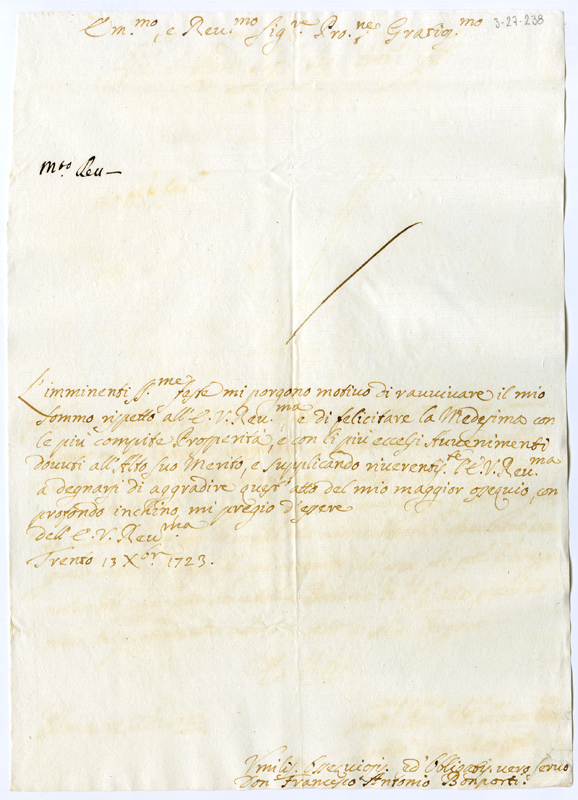 Em.mo, e Reu.mo Sig.re Pro.ne Gratio.mo
3-27-238
m.to Reu—
L'imminenti S.me feste mi porgono motivo di ravvivare il mio
sommo rispetto all'E.V. Reu.ma e di felicitare la Medesima con
le più compite Prosperità, e con li più eccelsi
douuti all'Alto suo Merito, e supplicando riuerentis.te l'E.V. Reu.ma
a degnarsi di aggradire quest'atto del mio maggior ossequio, con
profondo inchino, mi pregio d'essere
dell'E.V. Reu.ma
Trento 13 X.or 1723.
Vmilis. Ossequios. ed Obligatis. uero seruo
Don Francesco Antonio Bonporti.